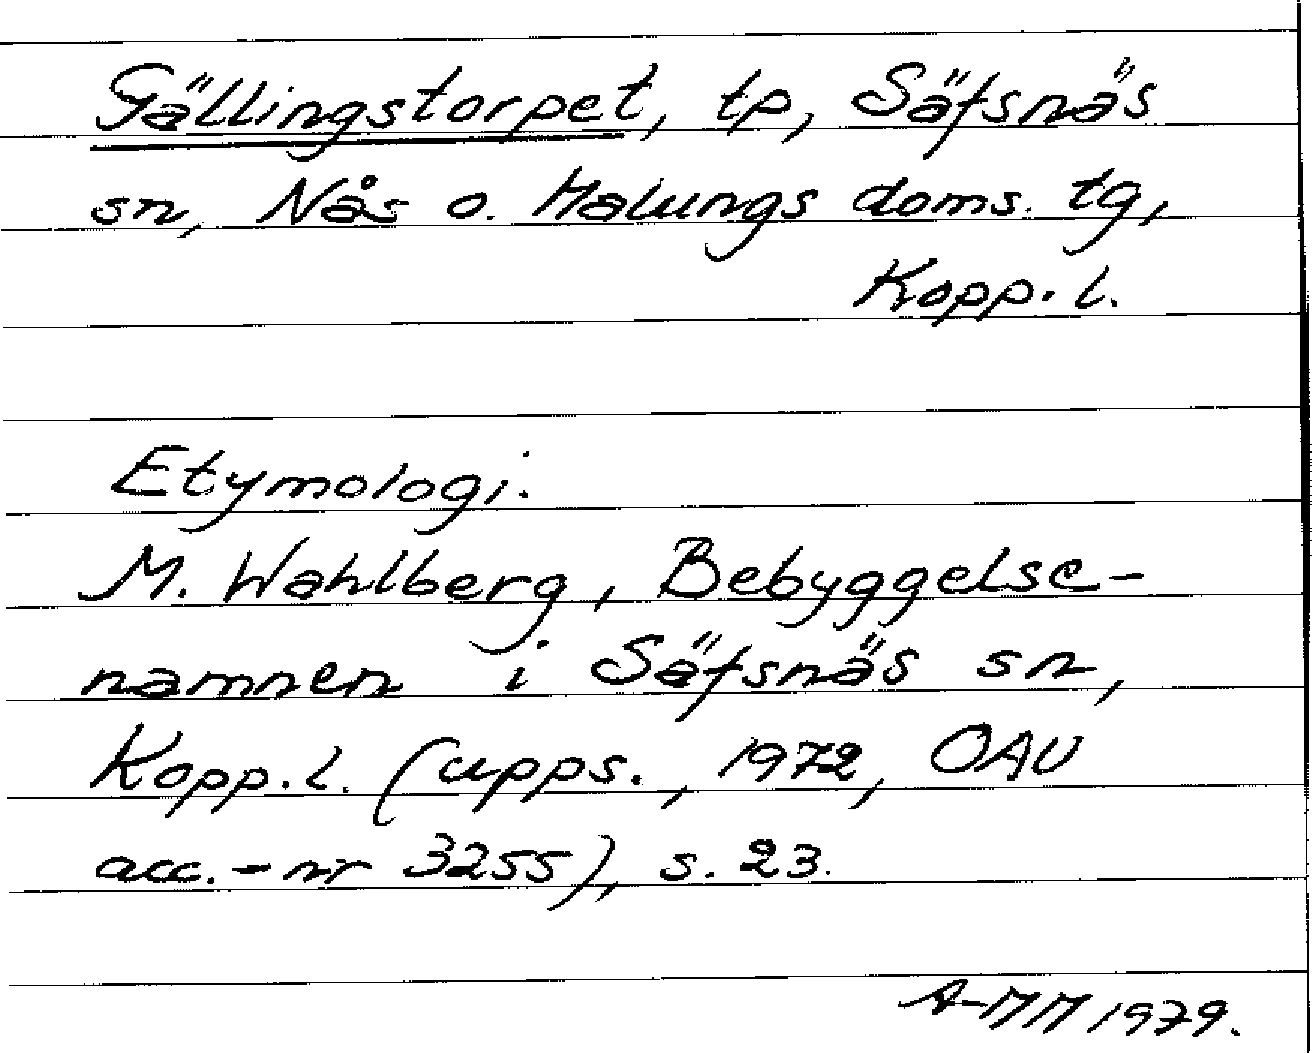 Gällingstorpet, tp, Säfsnäs
sn, Nås o. Malungs doms. tg,
Kopp. l.
Etymologi.
M. Wahlberg, Bebyggelse-
namnen i Säfsnäs sn,
Kopp. l. (upps., 1972, OAU
acc.-nr 3255), s. 23.
A-MM 1979.